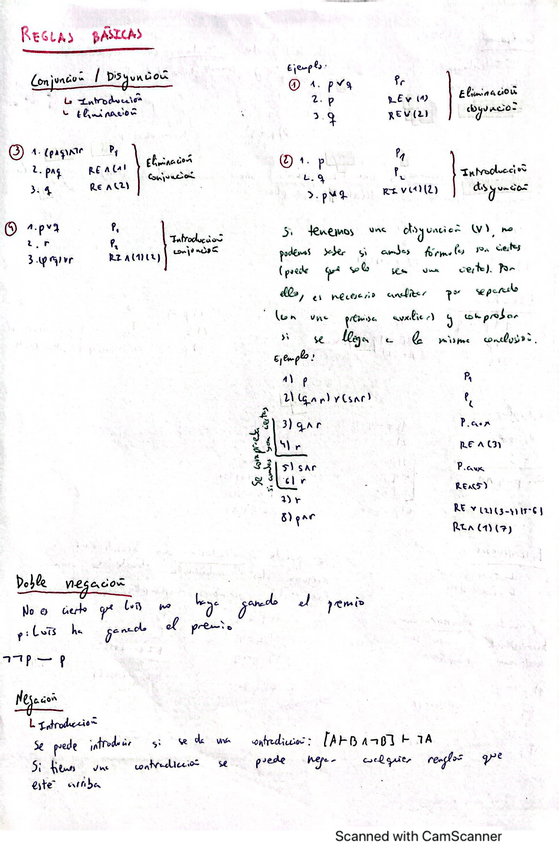 REGLAS BÁSICAS
Conjunción / Disyunción
↳ Introducción
↳ Eliminación
Ejemplo:
① 1. p∨q P1
2. p RE∨(1)
3. q RE∨(2)
Eliminación disyunción
③ 1. (p∧q)∧r P1
2. p∧q RE∧(1)
3. q RE∧(2)
Eliminación conjunción
② 1. p P1
2. q P2
3. p∨q RI∨(1)(2)
Introducción disyunción
④ 1. p∨q P1
2. r P2
3. (p∨q)∨r RI∧(1)(2)
Introducción conjunción
Si tenemos una disyunción (∨), no
podemos saber si ambas fórmulas son ciertas
(puede que solo sea una cierta). Por
ello, es necesario analizar por separado
(con una premisa auxiliar) y comprobar
si se llega a la misma conclusión.
Ejemplo:
1) p P1
2) (q∧r)∨(s∧r) P2
3) q∧r P.aux
4) r RE∧(3)
5) s∧r P.aux
6) r RE∧(5)
7) r RE∨(2)(3-4)(5-6)
8) p∧r RI∧(1)(7)
Se comprueba
si ambas son ciertas
Doble negación
No es cierto que Luis no haya ganado el premio
p: Luis ha ganado el premio
¬¬p — p
Negación
↳ Introducción
Se puede introducir si se da una contradicción: [A⊢B∧¬B] ⊢ ¬A
Si tienes una contradicción se puede negar cualquier renglón que
esté arriba
Scanned with CamScanner